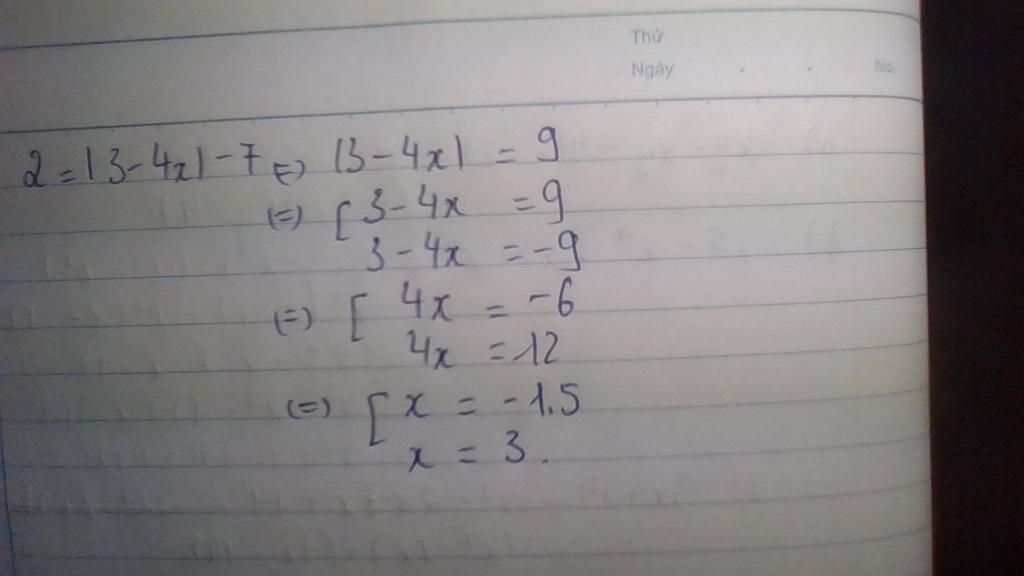 Thứ
Ngày . . No.
2 = |3 - 4x| - 7 (=) |3 - 4x| = 9
(=) [ 3 - 4x = 9
3 - 4x = -9
(=) [ 4x = -6
4x = 12
(=) [ x = -1.5
x = 3.